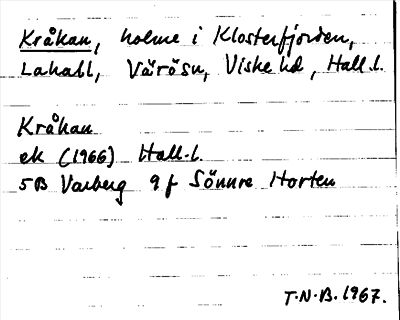 Kråkan, holme i Klosterfjorden,
Lahall, Värö sn, Viske hd, Hall.l.
Kråkan
ek (1966) Hall.l.
5B Varberg 9 f Sönnre Horten
T.N.B. 1967.